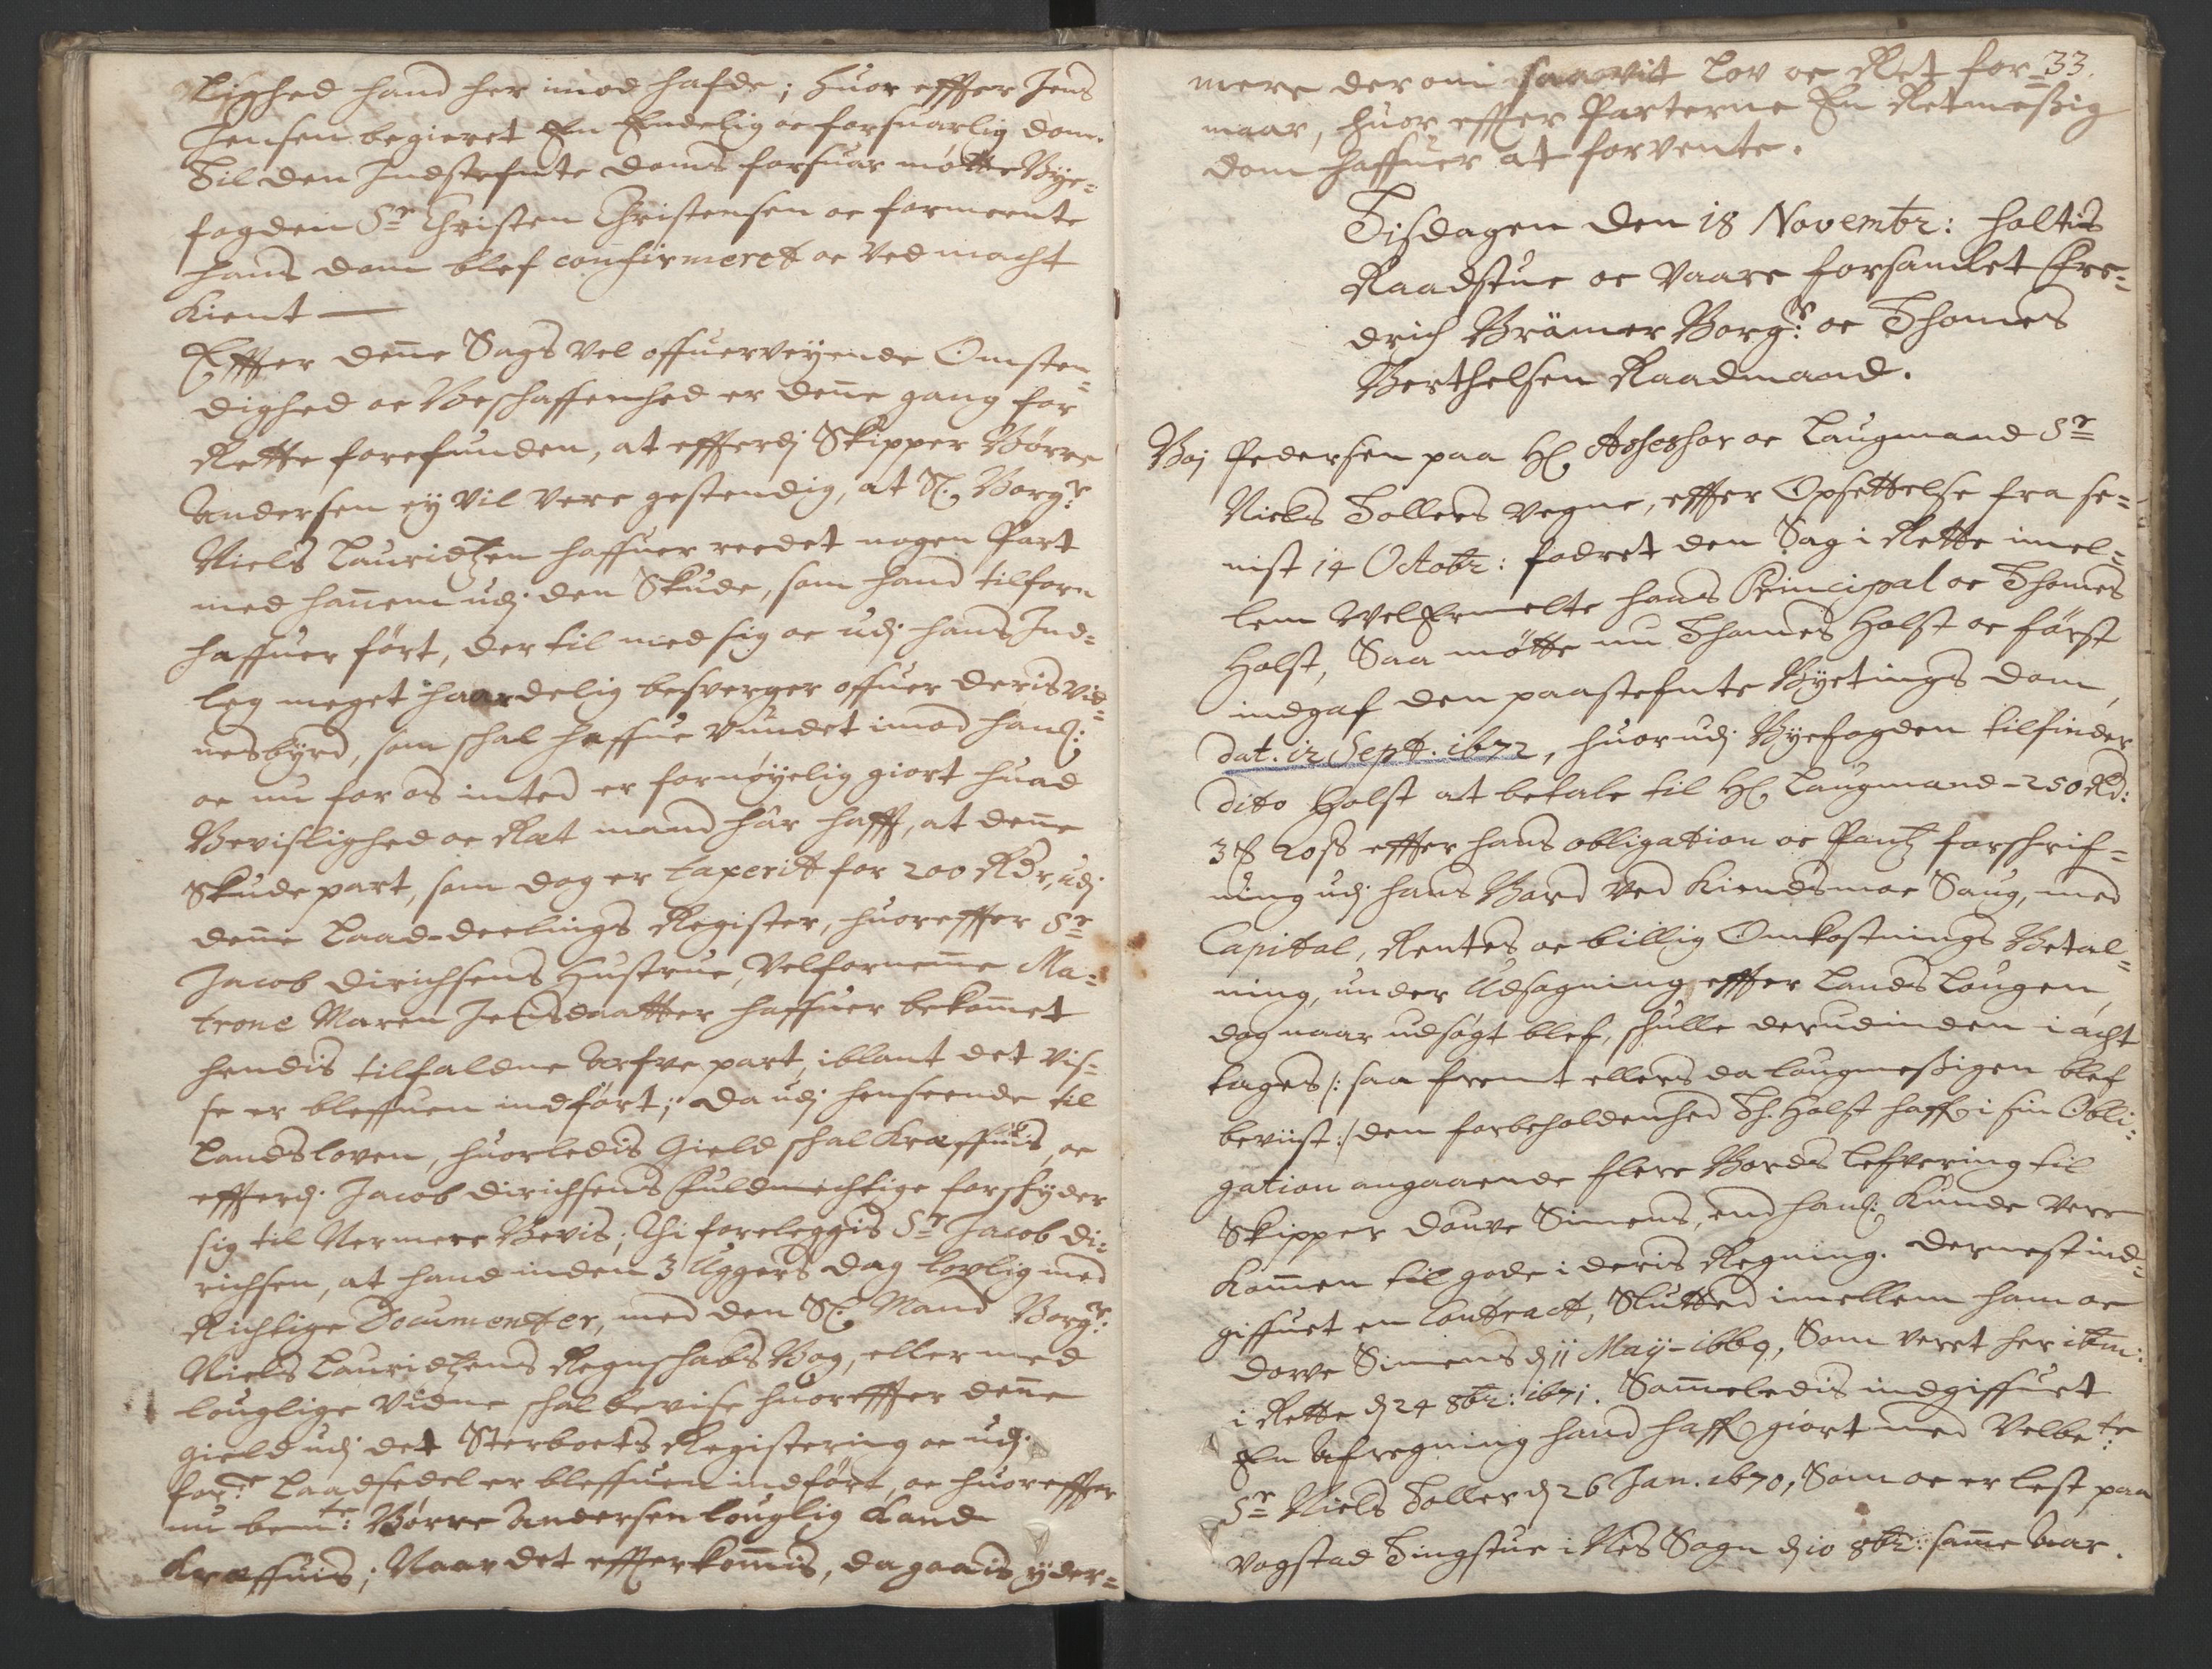 lighed hand her imod hafde; huor effter Jens
Jensen begieret En Endelig oc forsuarlig dom.
Til den Indstefnte doms forsuar møtte Bye-
fogden Sr Christen Christensen oc formeente
hans dom blef confirmeret oc ved macht
kient —
Effter deñe Sags vel offuerveyende Omsten-
dighed oc Beschaffenhed er deñe gang for
Rette forefunden, at effterdj Skipper Børre
Andersen ey vil vere gestendig, at Sl. Borgr:
Niels Lauridtzen haffuer reedet nogen Part
med hañem udj den Skude, som hand tilforn
haffuer ført, der til med sig oc udj hans Ind-
leg meget haardelig besverger offuer deris vid-
nesbyrd, som schal haffue vundet imod hanẽ:
oc nu for os inted er fornøyelig giort huad
Bevislighed oc Ret mand har hafft, at deñe
Skude part, som dog er taxerit for 200 Rdr, udj
deñe Laad-deelings Register, huoreffter Sr
Jacob Dirichsens Hustrue, Velfornemme Ma-
trone Maren Jensdaatter haffuer bekom̃et
hendis tilfaldne Arfve part, iblant det vis-
se er bleffuen indført; Da udj henseende til
Landsloven, huorledis Gield schal kreffuis, oc
effterdj Jacob Dirichsens Fuldmechtige forschyder
sig til Nermere Bevis; Thi foreleggis Sr Jacob Di-
richsen, at hand inden 3 Uggers dag lovlig med
Richtige Documenter, med den Sl. Mand Borgr:
Niels Lauridtzens Regnschabs Bog, eller med
louglige Vidne schal bevise huoreffter deñe
gield udj det Sterboets Registering oc udj
forne Laadsedel er bleffuen indført, oc huoreffter
nu bemte: Børre Andersen louglig kand
kreffuis; Naar det effterkom̃is, da gaais yder-
33.
mere der om saavit Lov oc Ret for-
maar, huor effter Parterne En Retmessig
dom haffuer at forvente.
Tisdagen den 18 Novembr: holtis
Raadstue oc vaare forsamlet Fre-
drich Brämer Borgr: oc Thomes
Berthelsen Raadmand.
Boj Pedersen paa Hl Assessor oc Laugmand Sr
Niels Tollers vegne, effter Opsettelse fra se-
nist 14 Octobr: fodret den Sag i Rette imel-
lem velermelte hans Principal oc Thomes
Holst, Saa møtte nu Thomes Holst oc først
indgaf den paastefnte Byetings dom,
dat. 12 Sept. 1672, huorudj Byefogden tilfinder
dito Holst at betale til Hl Laugmand - 250 Rd:
3 ꝑ 20 ß effter hans obligation oc Pant forschrif-
ning udj hans Bord ved Kiendsmoe Saug, med
Capital, Rentes oc billig Omkostnings Betal-
ning, under Udsøgning effter Lands Lougen,
dog naar udsøgt blef, schulle derudinden i acht
tages /: saa fremt ellers da lougmessigen blef
beviist :/ den forbeholdenhed Th. Holst haffr i sin Obli-
gation angaaende flere Bords lefvering til
Skipper Douve Simens, end hanẽ: kunde vere
kom̃en til gode i deris Regning. Dernest ind-
giffuet en Contract, Slutted imellem ham oc
Dovve Simens d 11 Maij - 1669, Som veret her item:
i Rette d 24 8br: 1671. Sam̃eledis indgiffuet
En Afregning hand haffr giort med Velbete:
Sr Niels Toller d 26 Jan. 1670, Som oc er lest paa
Vogstad Tingstue i Nes Sogn d 10 8br: sam̃e Aar.